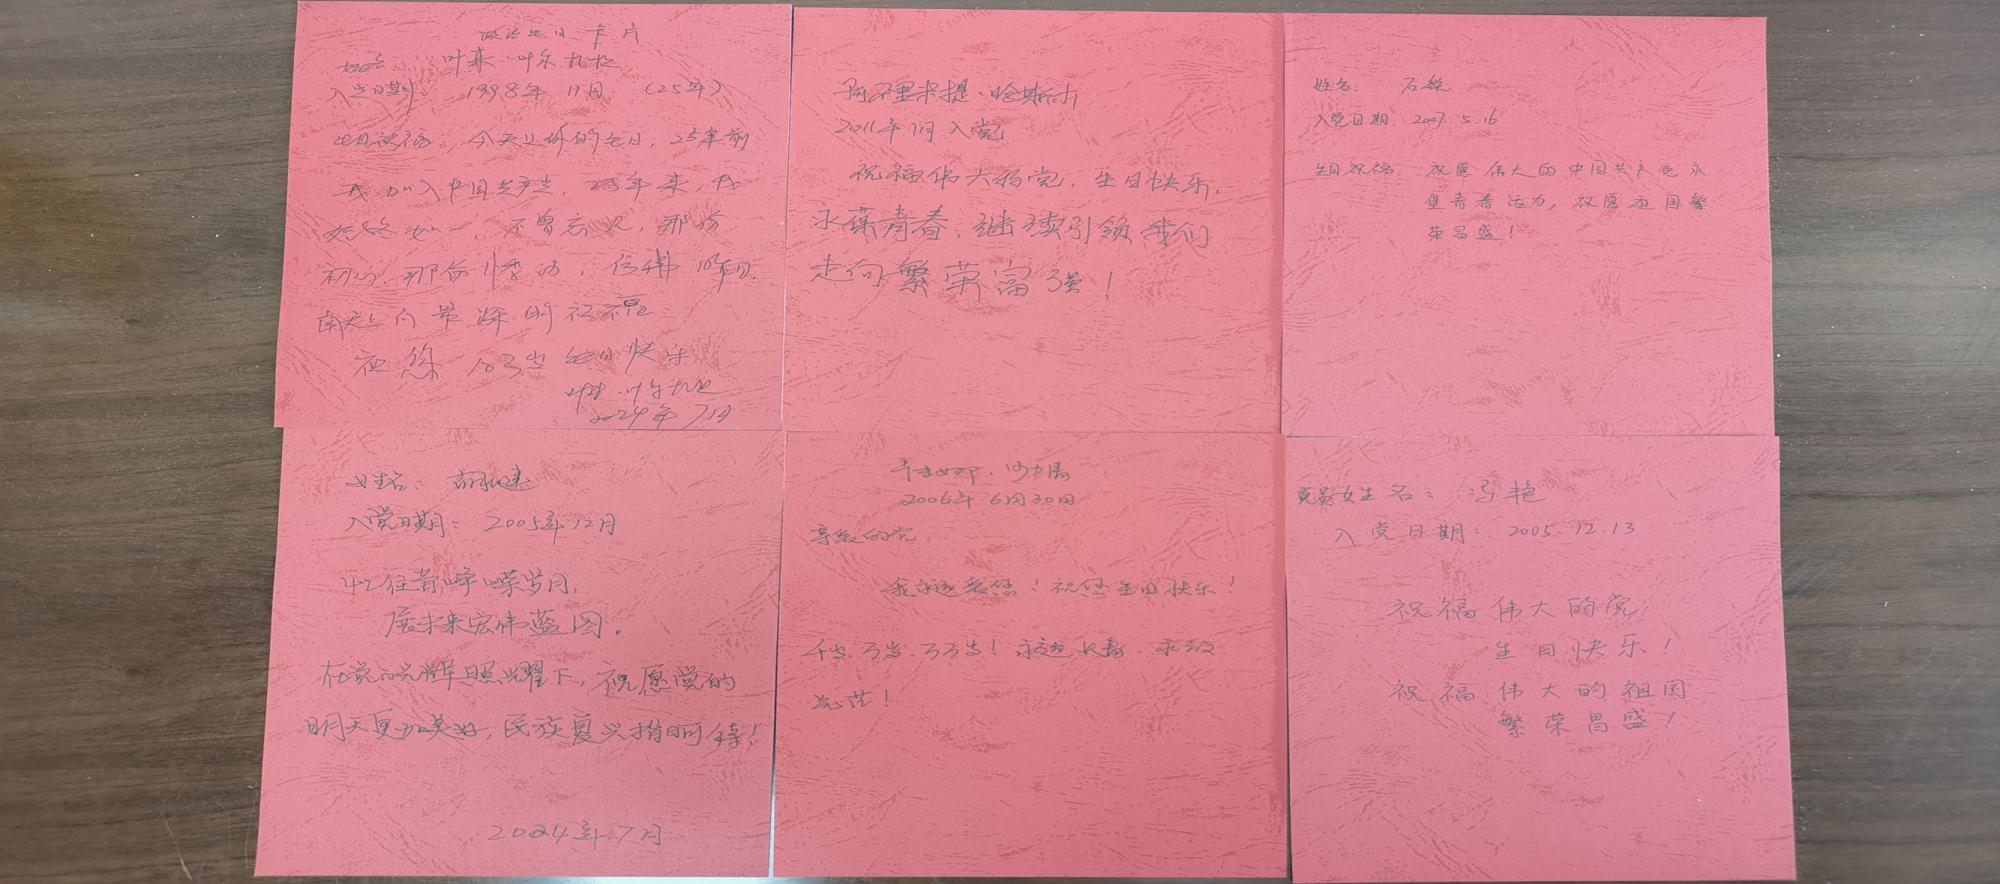 政治生日卡片
姓名: 叶森·叶尔
入党日期: 1998年11月 (25年)
生日祝福: 今天是您的生日, 25年前
我加入中国共产党, 25年来, 我
始终如一, 不曾忘记, 那份
初心, 那份悸动, 仿佛昨日.
献上最深的祝福
祝您103岁生日快乐
叶森·叶尔
2024年7月
阿不里米提·哈斯木
2011年7月入党
祝福伟大的党, 生日快乐,
永葆青春, 继续引领我们
走向繁荣富强!
姓名:
入党日期: 2007.5.16
生日祝福: 祝愿伟大的中国共产党永
葆青春活力, 祝愿祖国繁
荣昌盛!
姓名:
入党日期: 2005年12月
忆往昔峥嵘岁月,
展未来宏伟蓝图.
在党的光辉照耀下, 祝愿党的
明天更加美好, 民族复兴指日可待!
2024年7月
2006年6月30日
亲爱的党
我永远爱您! 祝您生日快乐!
千岁.万岁.万万岁! 永远长青.永放
光芒!
党员姓名: 冯艳
入党日期: 2005.12.13
祝福伟大的党
生日快乐!
祝福伟大的祖国
繁荣昌盛!